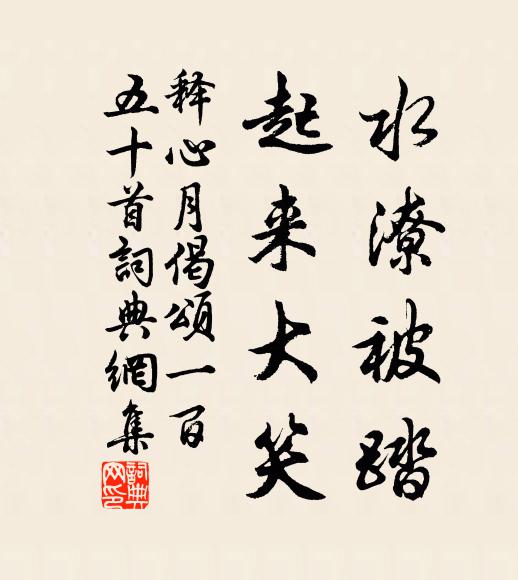 水潦被踏
起来大笑
释心月偈頌一百
五十首詞典網集
詞典
网印